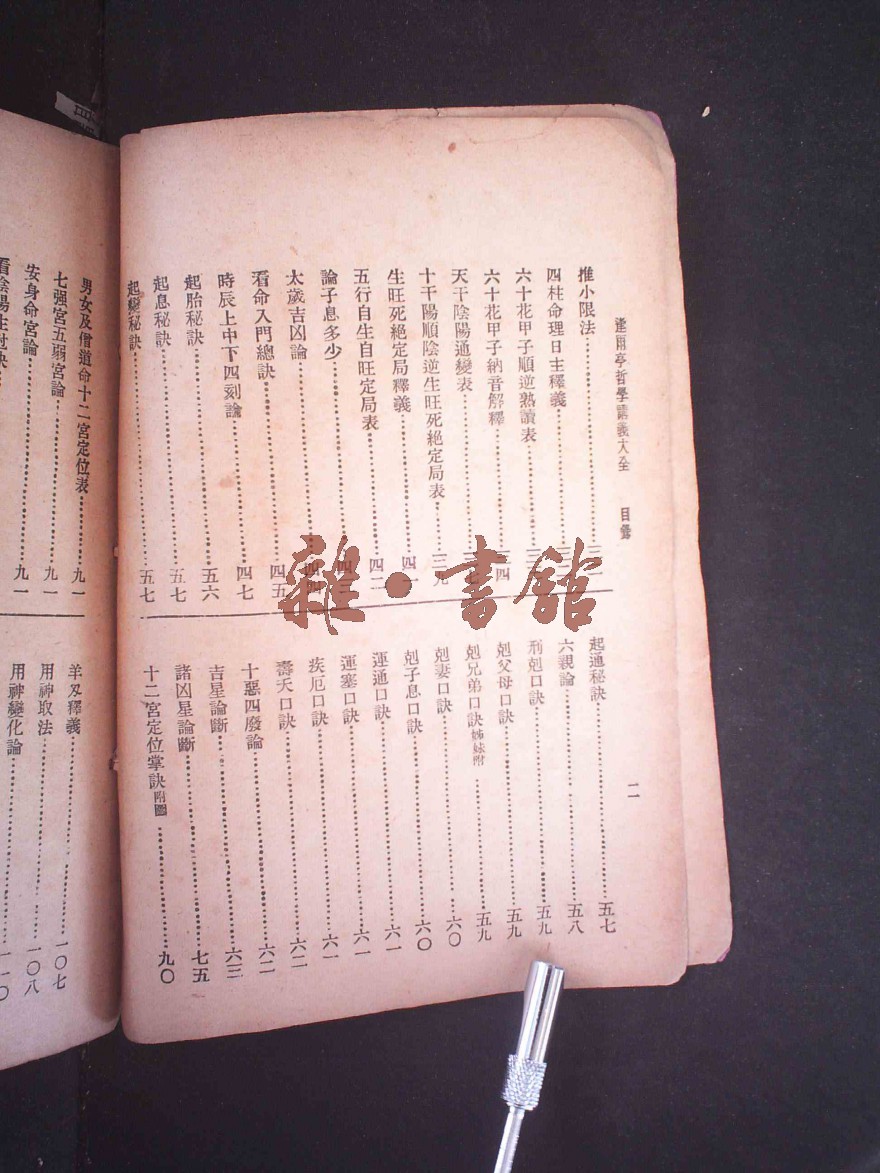 逢雨亭哲學講義大全 目錄 二
推小限法
四柱命理日主釋義
六十花甲子順逆熟讀表
六十花甲子納音解釋
天干陰陽通變表
十干陽順陰逆生旺死絕定局表 三九
生旺死絕定局釋義
五行自生自旺定局表 四二
論子息多少
太歲吉凶論
看命入門總訣 四五
時辰上中下四刻論 四七
起胎秘訣 五六
起息秘訣 五七
起變秘訣 五七
起通秘訣 五七
六親論 五八
刑剋口訣 五九
剋父母口訣 五九
剋兄弟口訣姊妹附 五九
剋妻口訣 六〇
剋子息口訣 六〇
運通口訣 六一
運塞口訣 六一
疾厄口訣 六一
壽夭口訣 六二
十惡四廢論 六二
吉星論斷 六三
諸凶星論斷 七五
十二宮定位掌訣附圖 九〇
男女及僧道命十二宮定位表 九一
七强宮五弱宮論 九一
安身命宮論 九一
看陰陽生尅訣
羊刃釋義 一〇七
用神取法 一〇八
用神變化論 一一〇
雜·書館